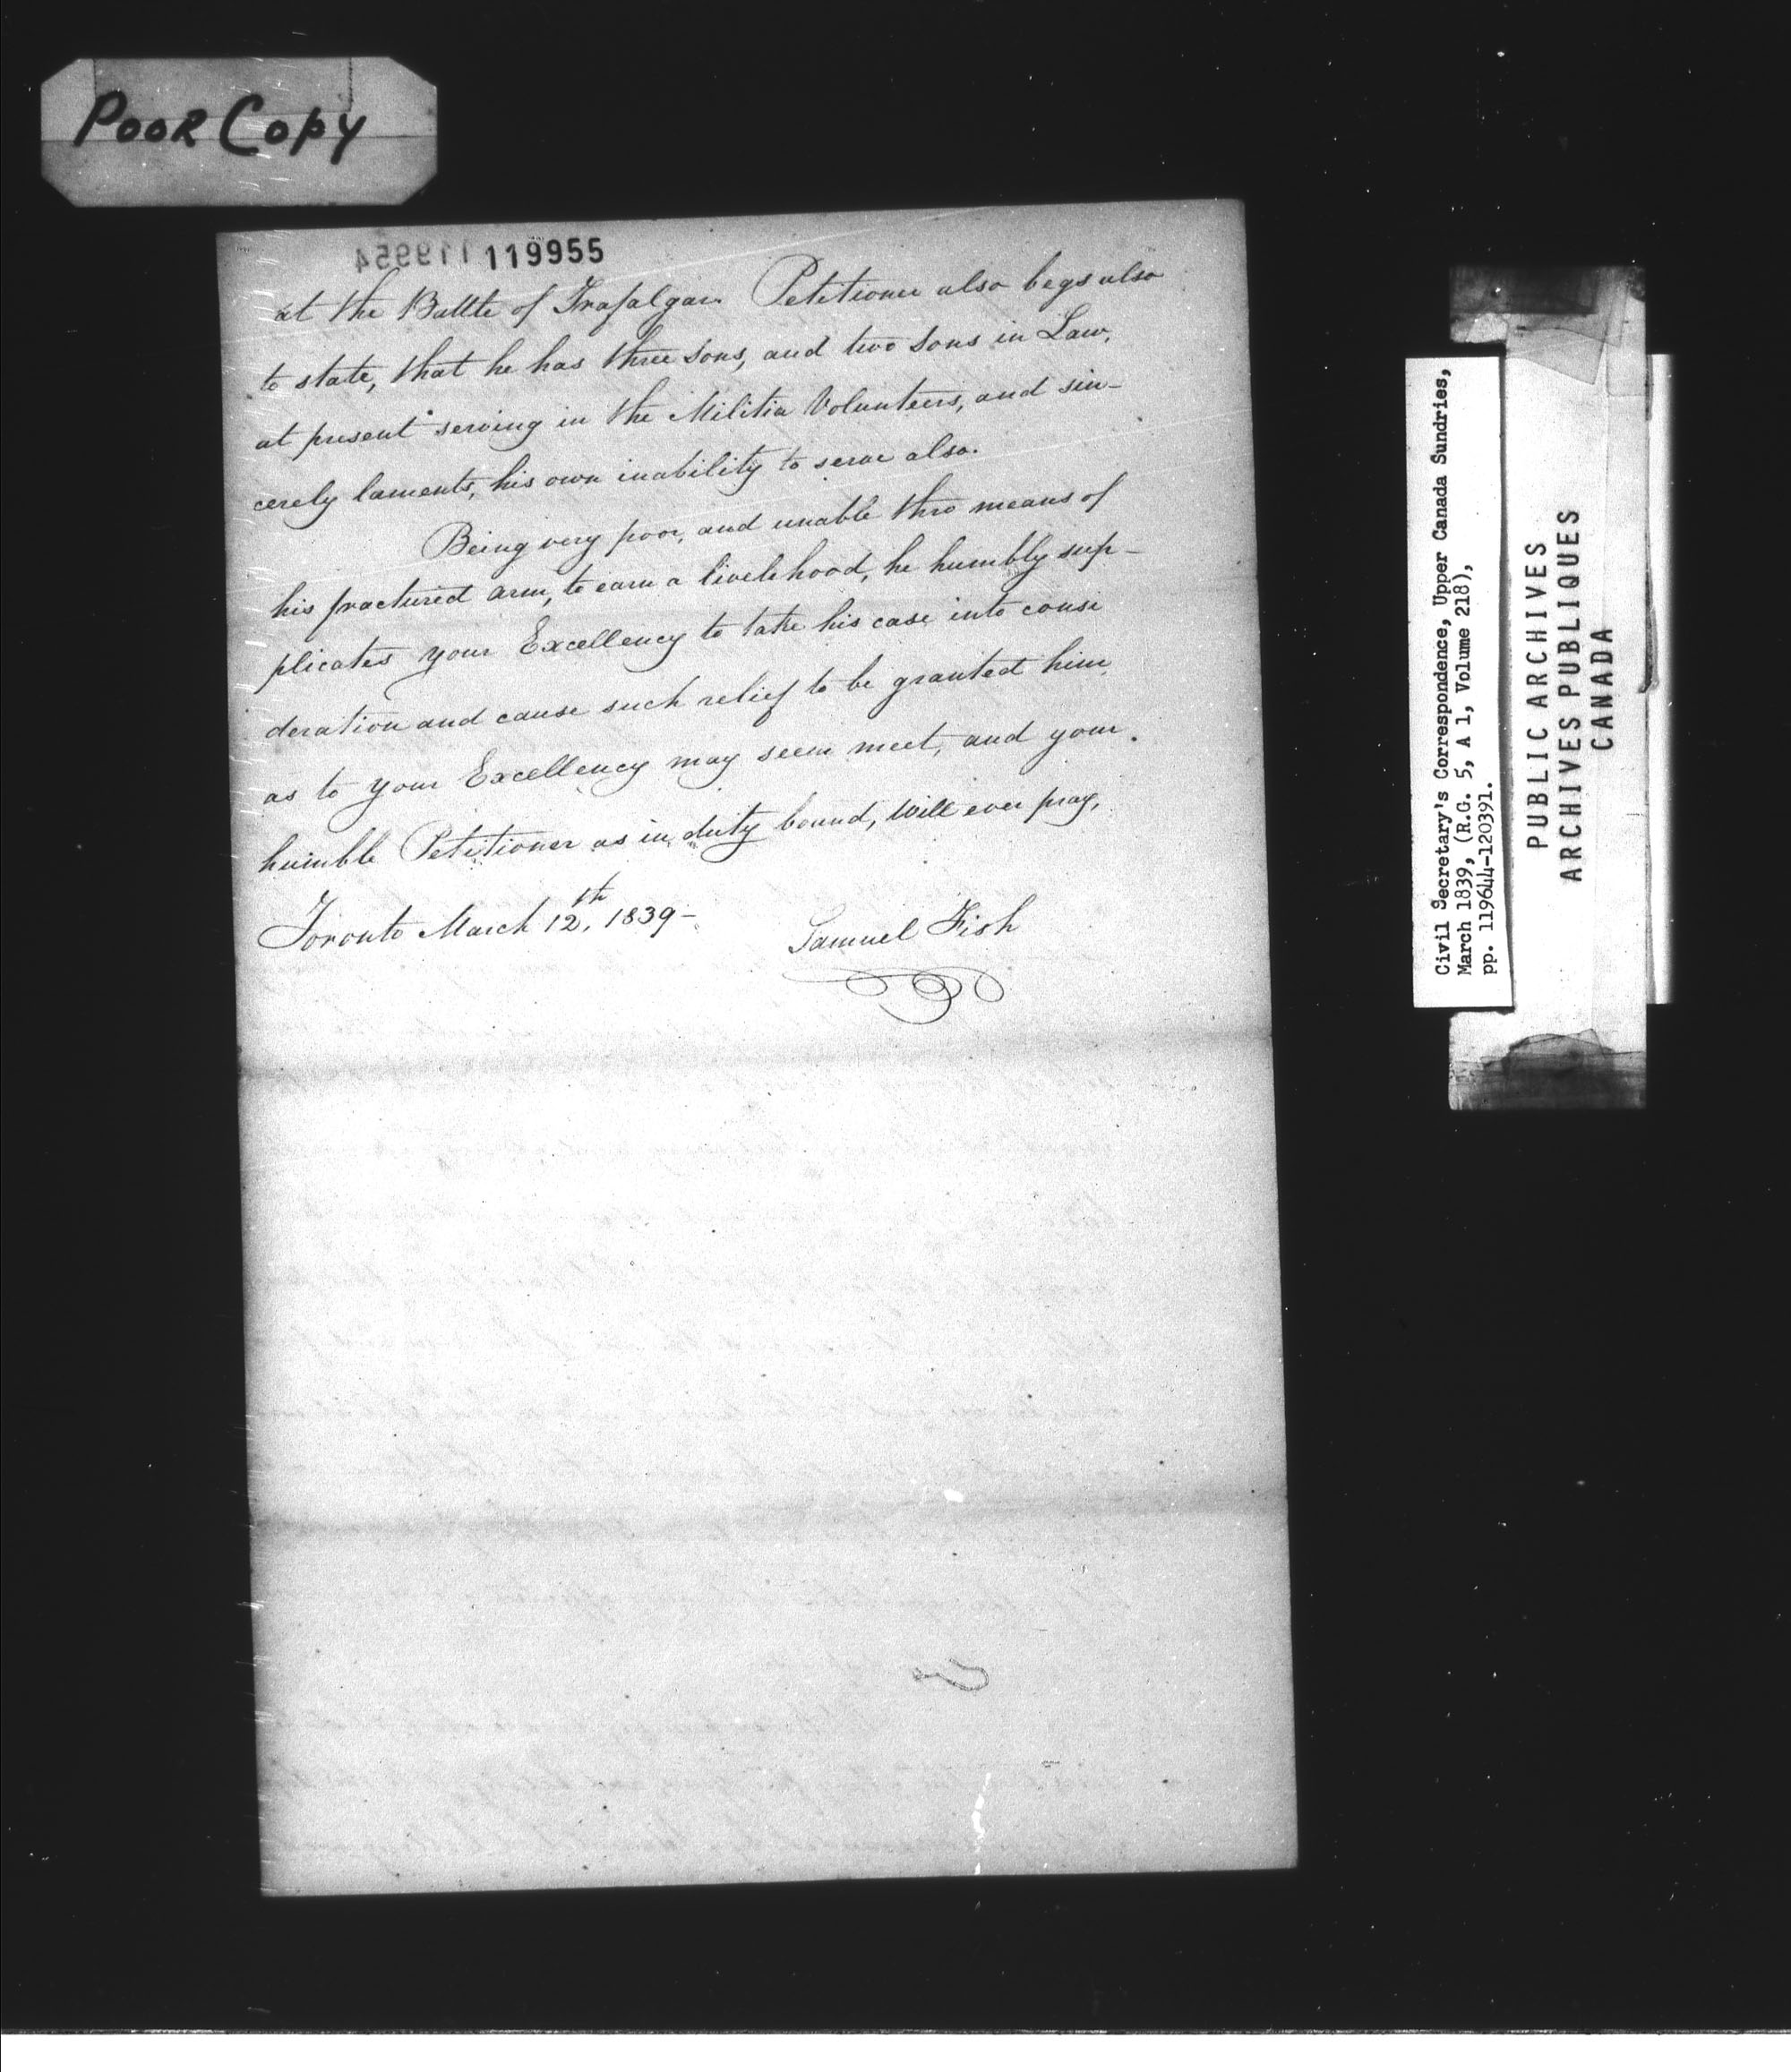 Poor Copy
119954 119955
at the Battle of Trafalgar. Petitioner also begs also
to state, that he has three Sons, and two Sons in Law,
at present serving in the Militia Volunteers, and sin-
cerely laments, his own inability to serve also.
Being very poor, and unable thro means of
his fractured arm, to earn a livelihood, he humbly sup-
plicates your Excellency to take his case into consi
deration and cause such relief to be granted him,
as to your Excellency may seem meet, and your
humble Petitioner as in duty bound, will ever pray,
Toronto March 12th, 1839-
Samuel Fish
Civil Secretary's Correspondence, Upper Canada Sundries,
March 1839, (R.G. 5, A 1, Volume 218),
pp. 119644-120391.
PUBLIC ARCHIVES
ARCHIVES PUBLIQUES
CANADA